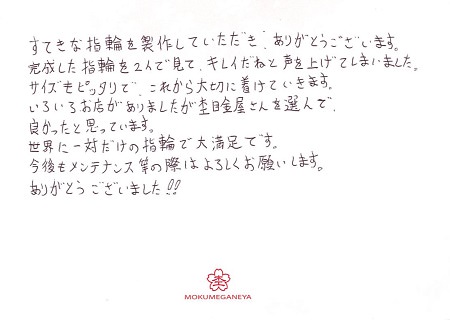 すてきな指輪を製作していただき、ありがとうございます。
完成した指輪を2人で見て、キレイだねと声を上げてしまいました。
サイズもピッタリで、これから大切に着けていきます。
いろいろお店がありましたが杢目金屋さんを選んで、
良かったと思っています。
世界に一対だけの指輪で大満足です。
今後もメンテナンス等の際はよろしくお願いします。
ありがとうございました!!
杢
MOKUMEGANEYA